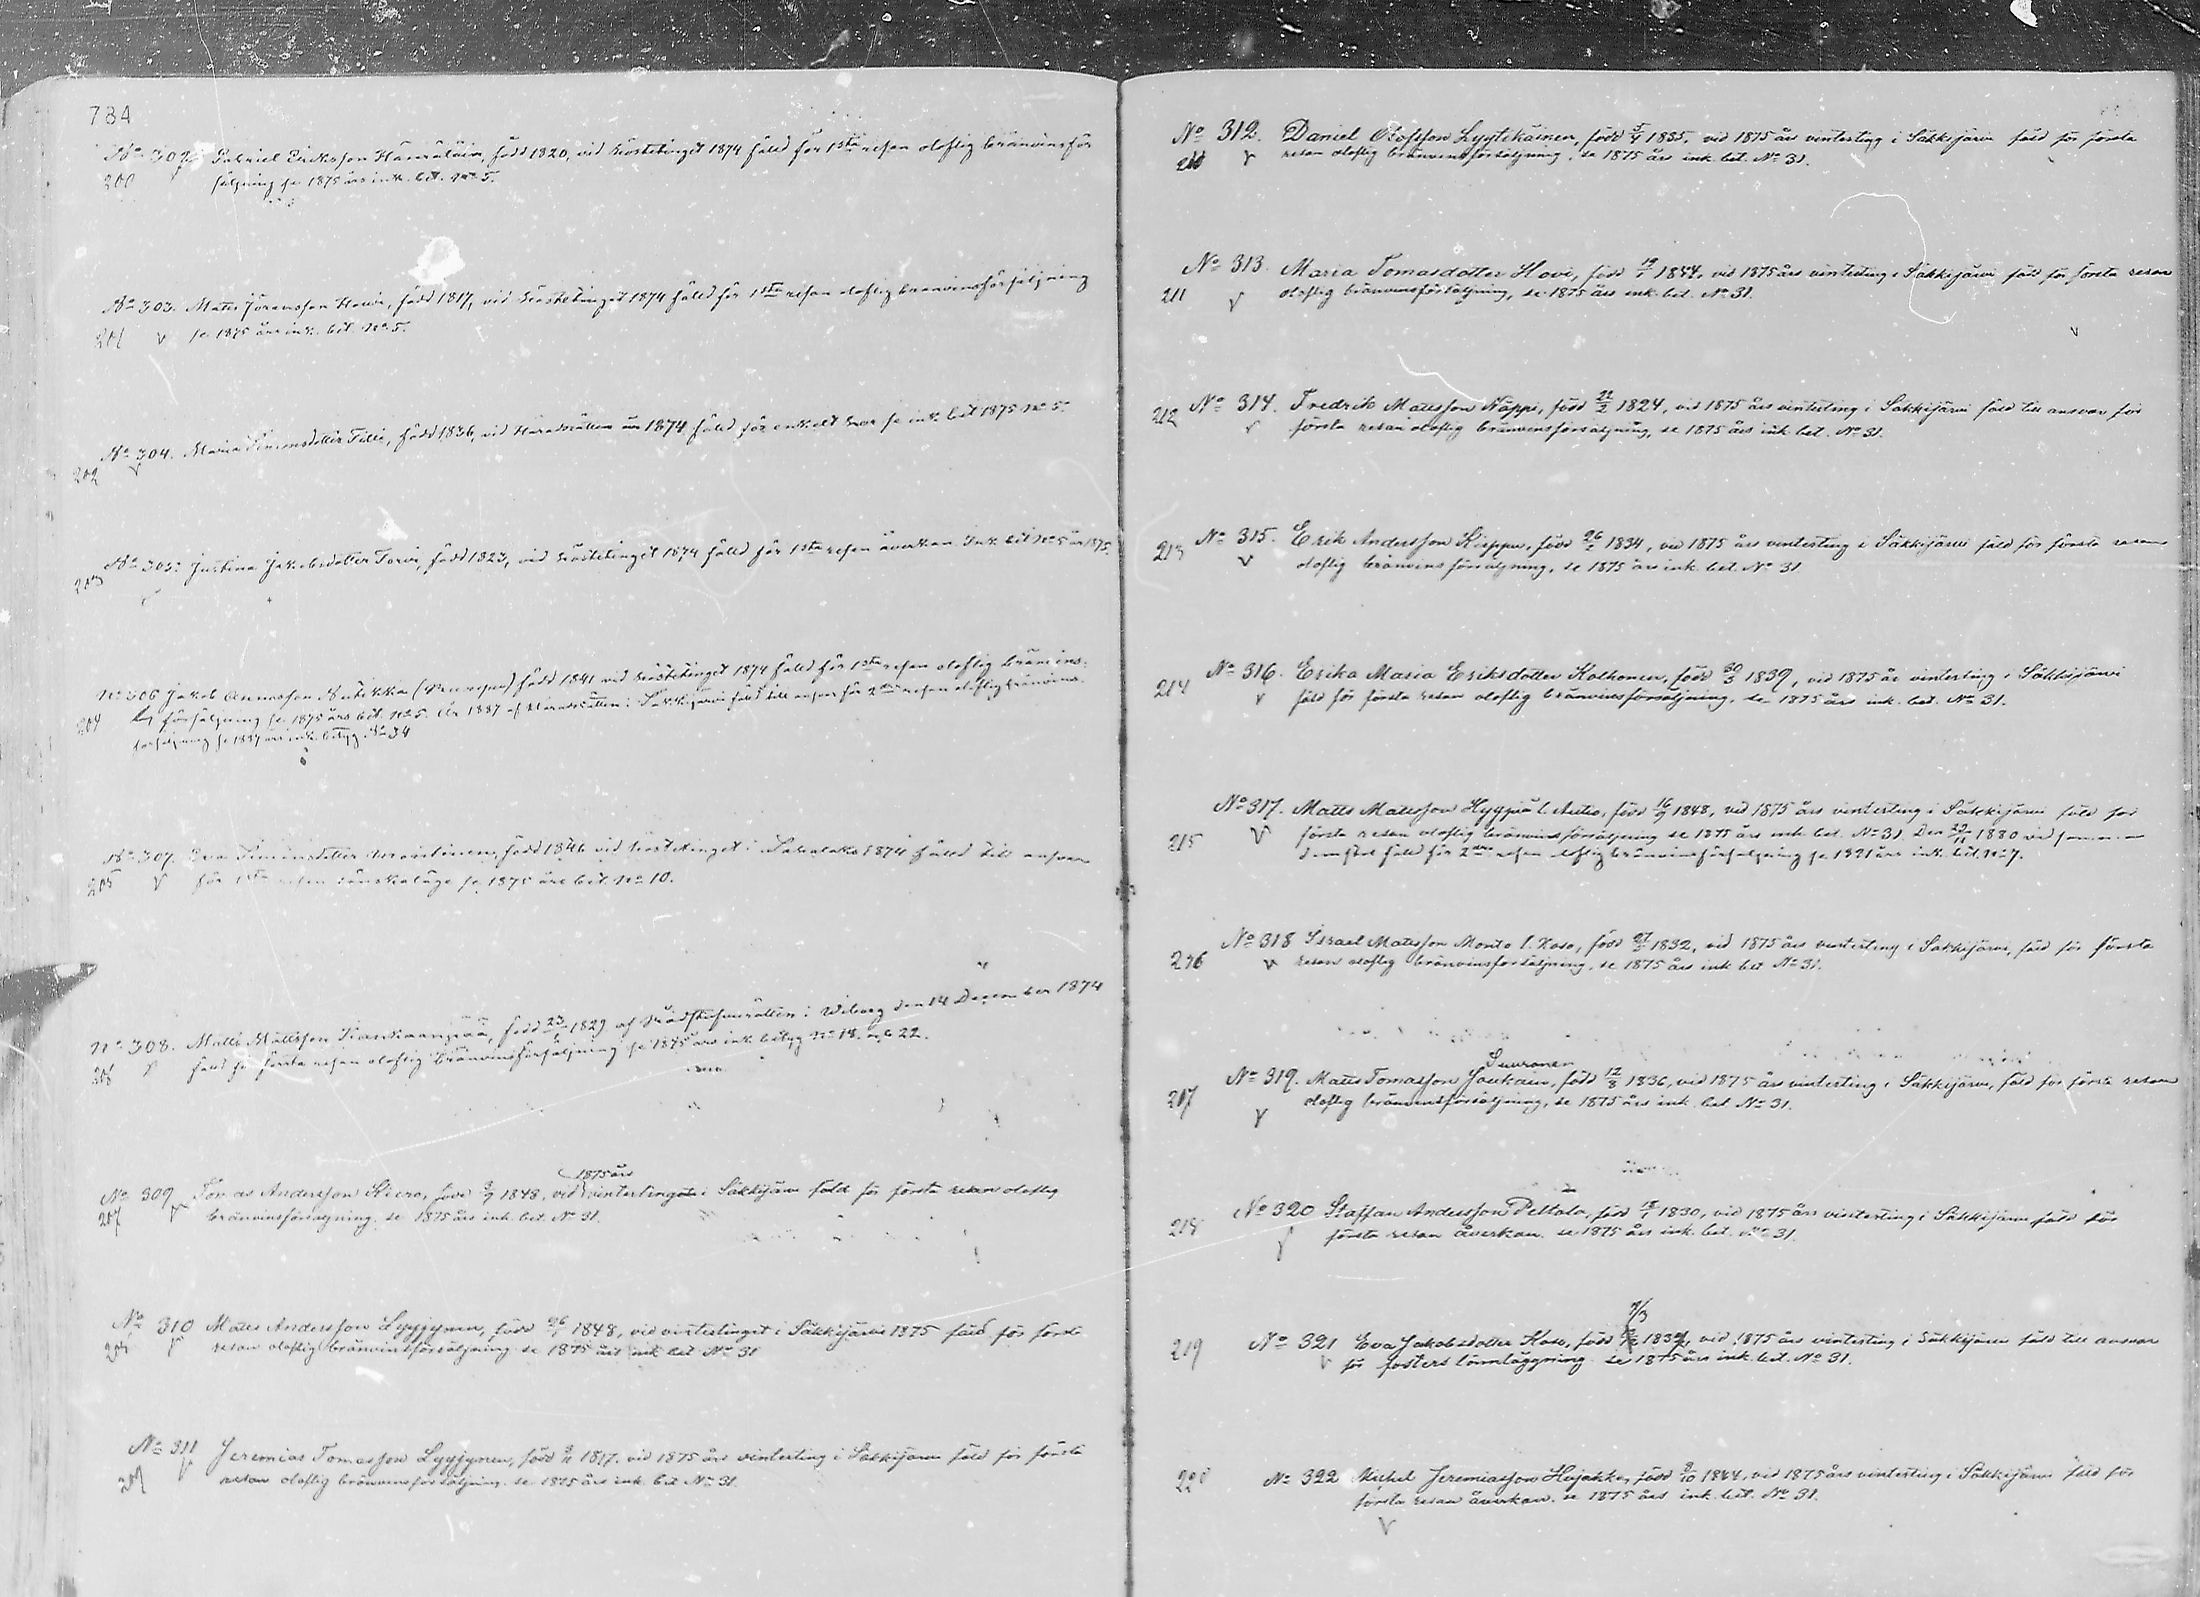 784
No 302. Gabriel Eriksson Hämäläin, född 1820, vid hösttinget 1874 fälld för 1sta resan oloflig bränvinsför
200 säljning se 1875 års ink. bet. No 5.
No 303. Matts Göransson Hovi, född 1817, vid hösttinget 1874 fälld för 1sta resan oloflig bränvinsförsäljning
201 v se 1875 års ink. bet. No 5.
No 304. Maria Simonsdotter Tilli, född 1836, vid Häradsrätten år 1874 fäld för enkelt hor se ink. bet 1875 No 5.
202 v
No 305. Justina Jakobsdotter Torvi, född 1823, vid hösttinget 1874 fälld för 1sta resan åverkan. Ink. bet No 5 år 1875.
203
No 306 Jakob Annasson född 1841 vid hösttinget 1874 fälld för 1sta resan oloflig bränvins-
204 försäljning se 1875 års bet. No 5. År 1887 af Häradsrätten i Säkkijärvi fäld till ansvar för 2dra resan oloflig bränvins-
försäljning se 1887 års ink. betyg. No 34
No 307. Eva Simonsdotter född 1846 vid hösttinget i 1874 fälld till ansvar
205 v för 1sta resan lönskaläge se 1875 års bet. No 10.
No 308. Matts Mattsson Kankaanpää, född 23/ 1829 af Rådstufvurätten i Wiborg den 14 December 1874
206 v fäld för första resan oloflig bränvinsförsäljning se 1875 års ink. betyg No 18. 22.
1875 års
No 309 Tomas Andersson född /9 1848, vid vintertinget i Säkkijärvi fäld för första resan oloflig
207 v bränvinsförsäljning. se 1875 års ink. bet. No 31.
No 310 Matts Andersson Lyyjynen, född 26/ 1848, vid vintertinget i Säkkijärvi 1875 fäld för första
208 v resan oloflig bränvinsförsäljning. se 1875 års ink. bet No 31
No 311 Jeremias Tomasson Lyyjynen, född 1817. vid 1875 års vinterting i Säkkijärvi fäld för första
209 v resan oloflig bränvinsförsäljning. se 1875 års ink. bet No 31.
No 312. Daniel Olofsson Lyytikäinen, född 5/4 1835. vid 1875 års vinterting i Säkkijärvi fäld för första
210 v resan oloflig bränvinsförsäljning, se 1875 års ink. bet. No 31.
No 313. Maria Tomasdotter Hovi, född 19/ 1844, vid 1875 års vinterting i Säkkijärvi fäld för första resan
211 v oloflig bränvinsförsäljning, se 1875 års ink. bet. No 31.
v
212 No 314. Fredrik Matsson Näppi, född 22/2 1824, vid 1875 års vinterting i Säkkijärvi fäld till ansvar för
v första resan oloflig bränvinsförsäljning, se 1875 års ink. bet. No 31.
213 No 315. Erik Andersson Kieppu, född 26/ 1834, vid 1875 års vinterting i Säkkijärvi fäld för första resan
v oloflig bränvins försäljning, se 1875 års ink. bet. No 31.
214 No 316. Erika Maria Eriksdotter Kolhonen, född 30/3 1839, vid 1875 år vinterting i Säkkijärvi
v fäld för första resan oloflig bränvinsförsäljning, se 1875 års ink. bet. No 31.
No 317. Matts Matsson Hyyppä l. Autio, född 16/9 1848, vid 1875 års vinterting i Säkkijärvi fäld för
215 v första resan oloflig bränvinsförsäljning se 1875 års ink. bet. No 31. Den 29/11 1880 vid samma
Domstol fäld för 2dra resan oloflig bränvinsförsäljning se 1881 års ink. bet. No 7.
No 318 Israel Matsson Monto l. Koso, född 27/ 1832, vid 1875 års vinterting i Säkkijärvi, fäld för första
216 v resan oloflig bränvinsförsäljning. se 1875 års ink bet No 31.
Suuronen
No 319. Matts Tomasson Joukain, född 12/8 1836, vid 1875 års vinterting i Säkkijärvi, fäld för första resan
217 v oloflig bränvinsförsäljning, se 1875 års ink. bet No 31.
No 320 Staffan Andersson Peltola, född 18/1 1830, vid 1875 års vinterting i Säkkijärvi fäld för
218 första resan åverkan. se 1875 års ink. bet. No 31.
7/3
219 No 321 Eva Jakobsdotter Koso, född 1834, vid 1875 års vinterting i Säkkijärvi fäld till ansvar
v för fosters lönnläggning. se 1875 års ink. bet. No 31.
220 No 322 Michel Jeremiasson Hujakka, född 9/10 1844, vid 1875 års vinterting i Säkkijärvi fäld för
första resan åverkan. se 1875 års ink. bet. No 31.
v